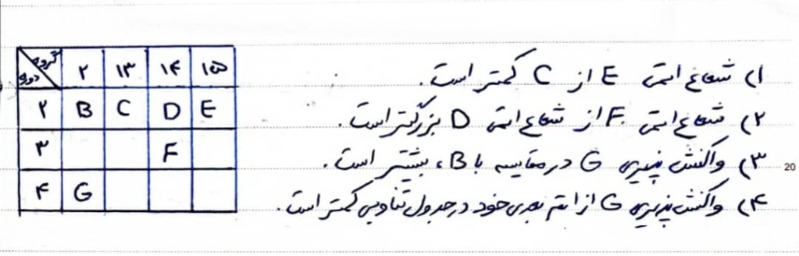 گروه دوره ۲ ۱۳ ۱۴ ۱۵
۲ B C D E
۳ F
۴ G
۱) شعاع اتمی E از C کمتر است.
۲) شعاع اتمی F از شعاع اتمی D بزرگتر است.
۳) واکنش پذیری G در مقایسه با B، بیشتر است.
۴) واکنش پذیری G از اتم بعدی خود در جدول تناوبی کمتر است.
20